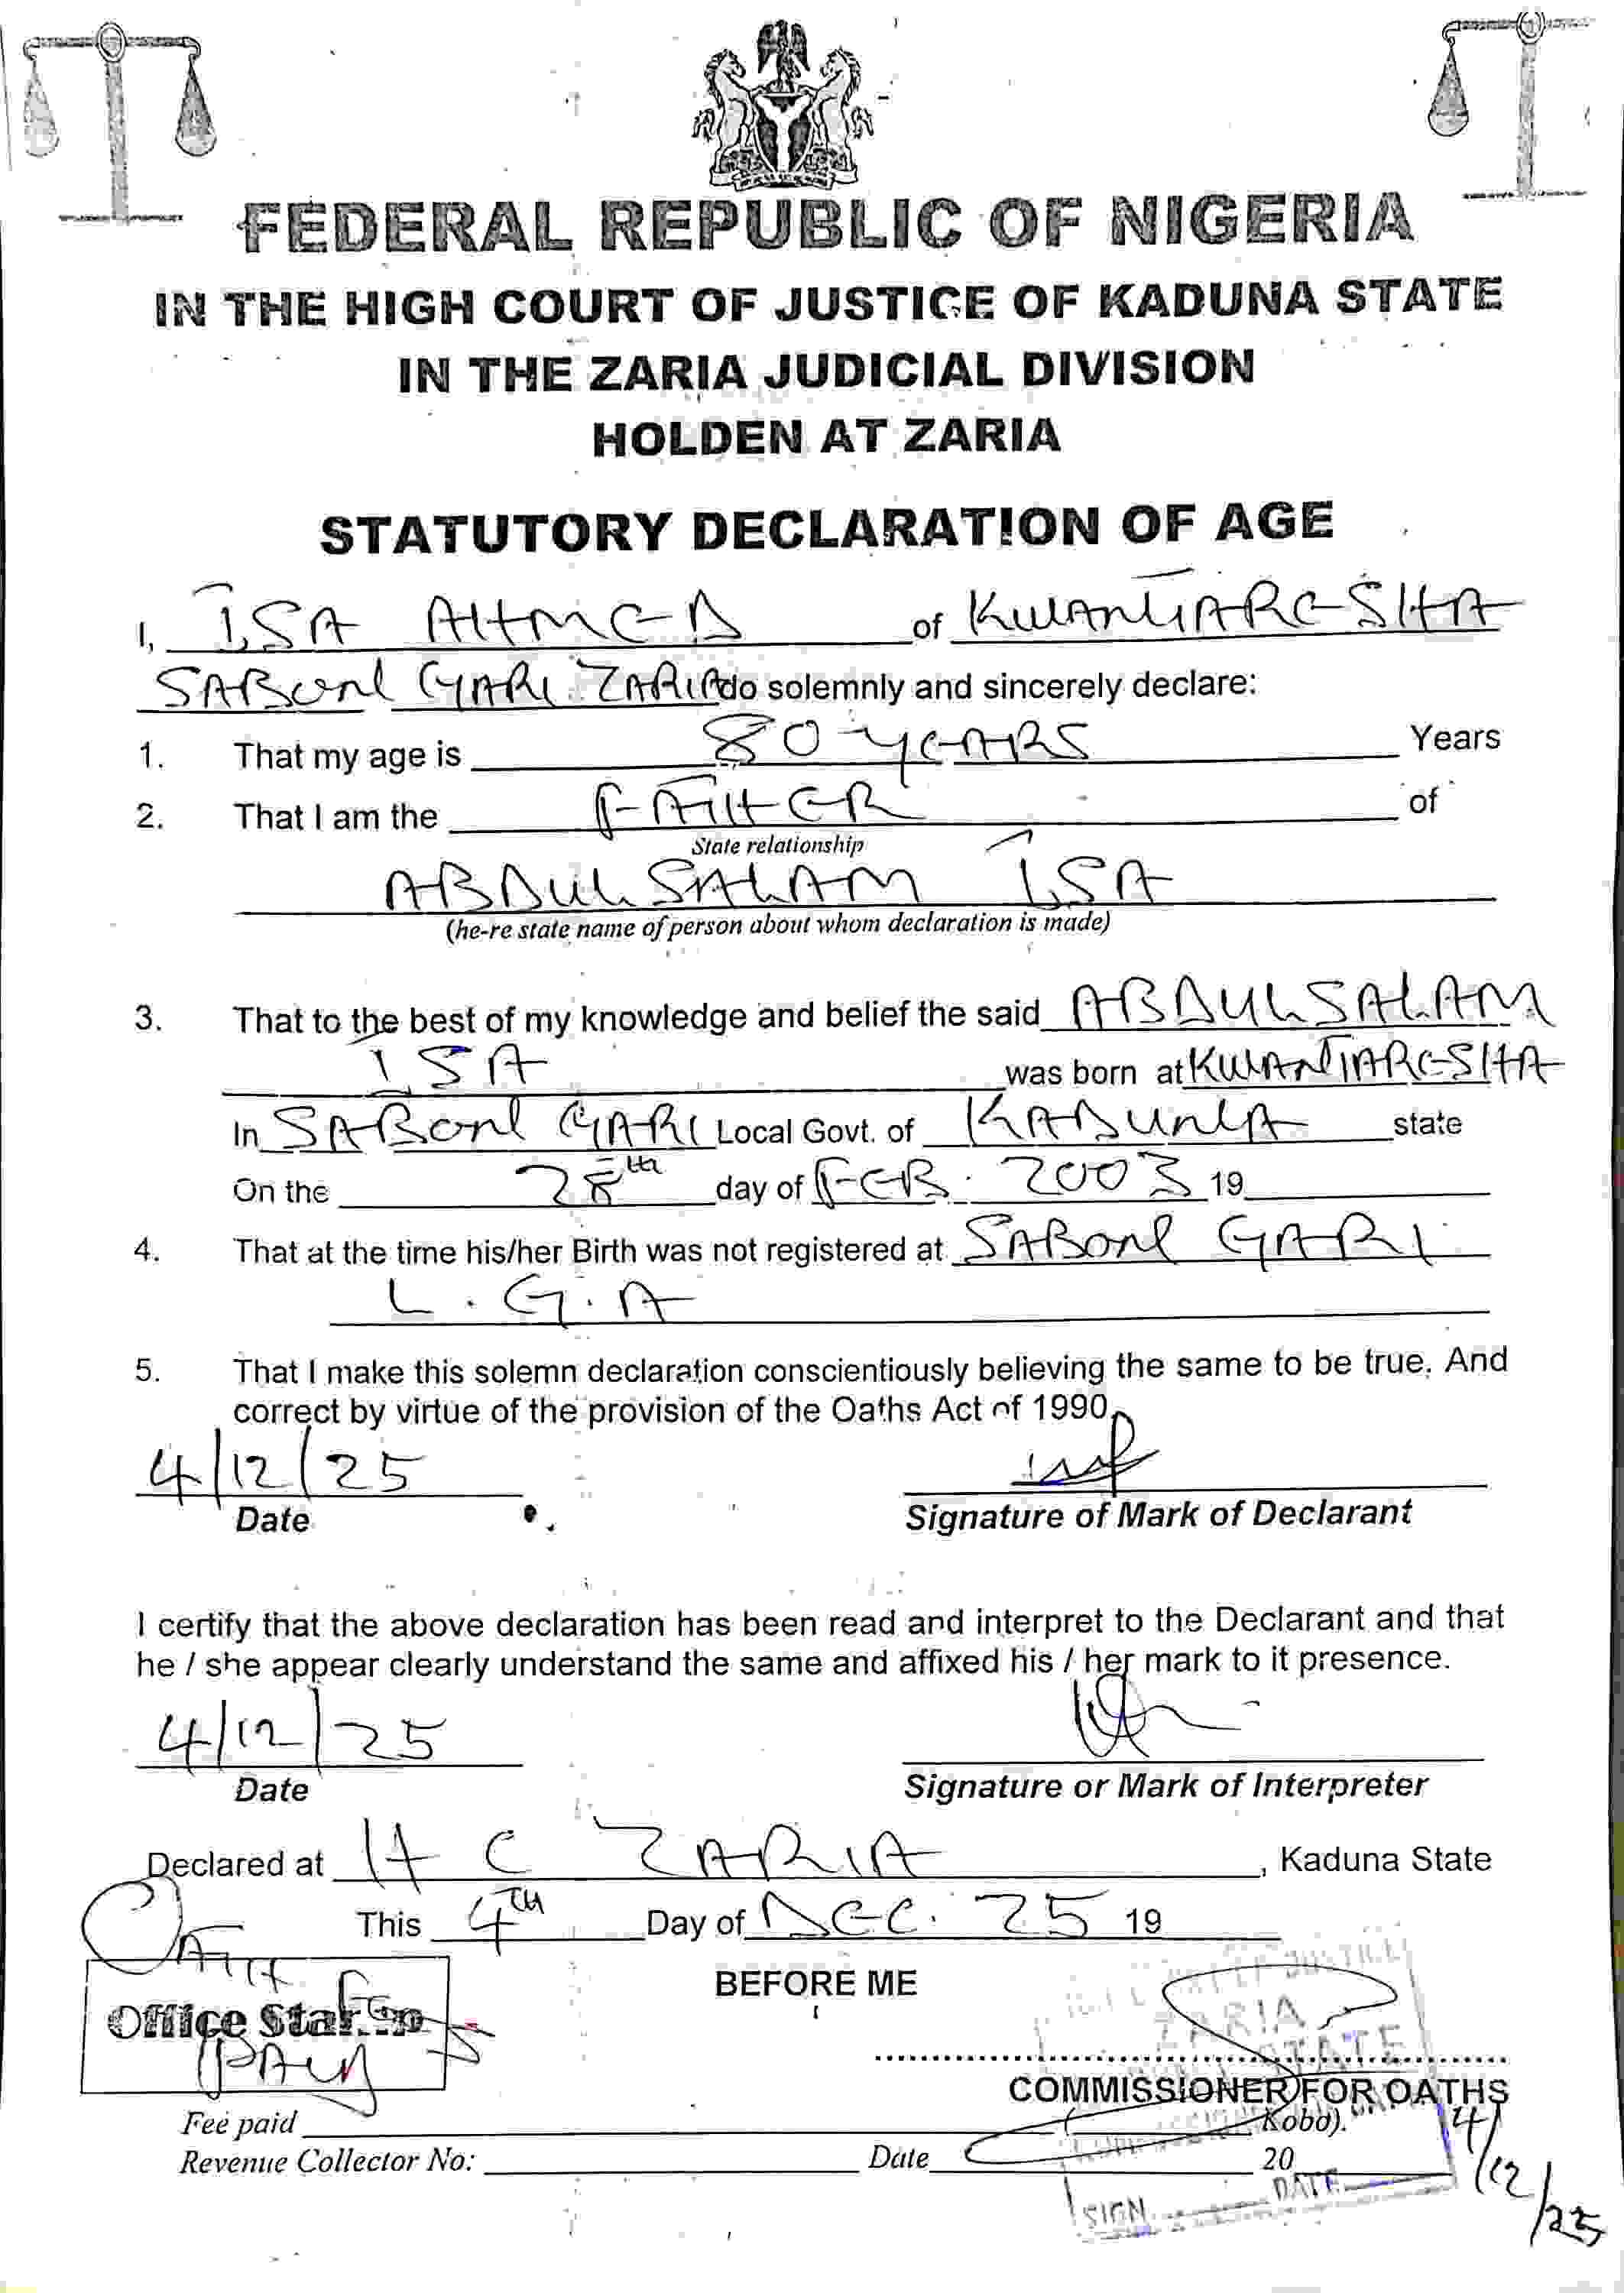 FEDERAL REPUBLIC OF NIGERIA
IN THE HIGH COURT OF JUSTICE OF KADUNA STATE
IN THE ZARIA JUDICIAL DIVISION
HOLDEN AT ZARIA
STATUTORY DECLARATION OF AGE
I, ISA AHMED of KWANTARESHA
SABON GARI ZARIA do solemnly and sincerely declare:
1. That my age is 80 YEARS Years
2. That I am the FATHER of
State relationship
ABDULSALAM ISA
(he-re state name of person about whom declaration is made)
3. That to the best of my knowledge and belief the said ABDULSALAM
ISA was born at KWANTARESHA
In SABON GARI Local Govt. of KADUNA state
On the 28th day of FEB. 2003 19
4. That at the time his/her Birth was not registered at SABON GARI
L.G.A
5. That I make this solemn declaration conscientiously believing the same to be true. And
correct by virtue of the provision of the Oaths Act of 1990
4/12/25
Date Signature of Mark of Declarant
I certify that the above declaration has been read and interpret to the Declarant and that
he / she appear clearly understand the same and affixed his / her mark to it presence.
4/12/25
Date Signature or Mark of Interpreter
Declared at H C ZARIA, Kaduna State
This 4TH Day of DEC. 25 19
OATH
BEFORE ME
JUSTICE
ZARIA
STATE
Office Stamp
FEE
PAY
COMMISSIONER FOR OATHS
Fee paid ( Kobo).
4/12/25
Revenue Collector No: Date 20
SIGN DATE